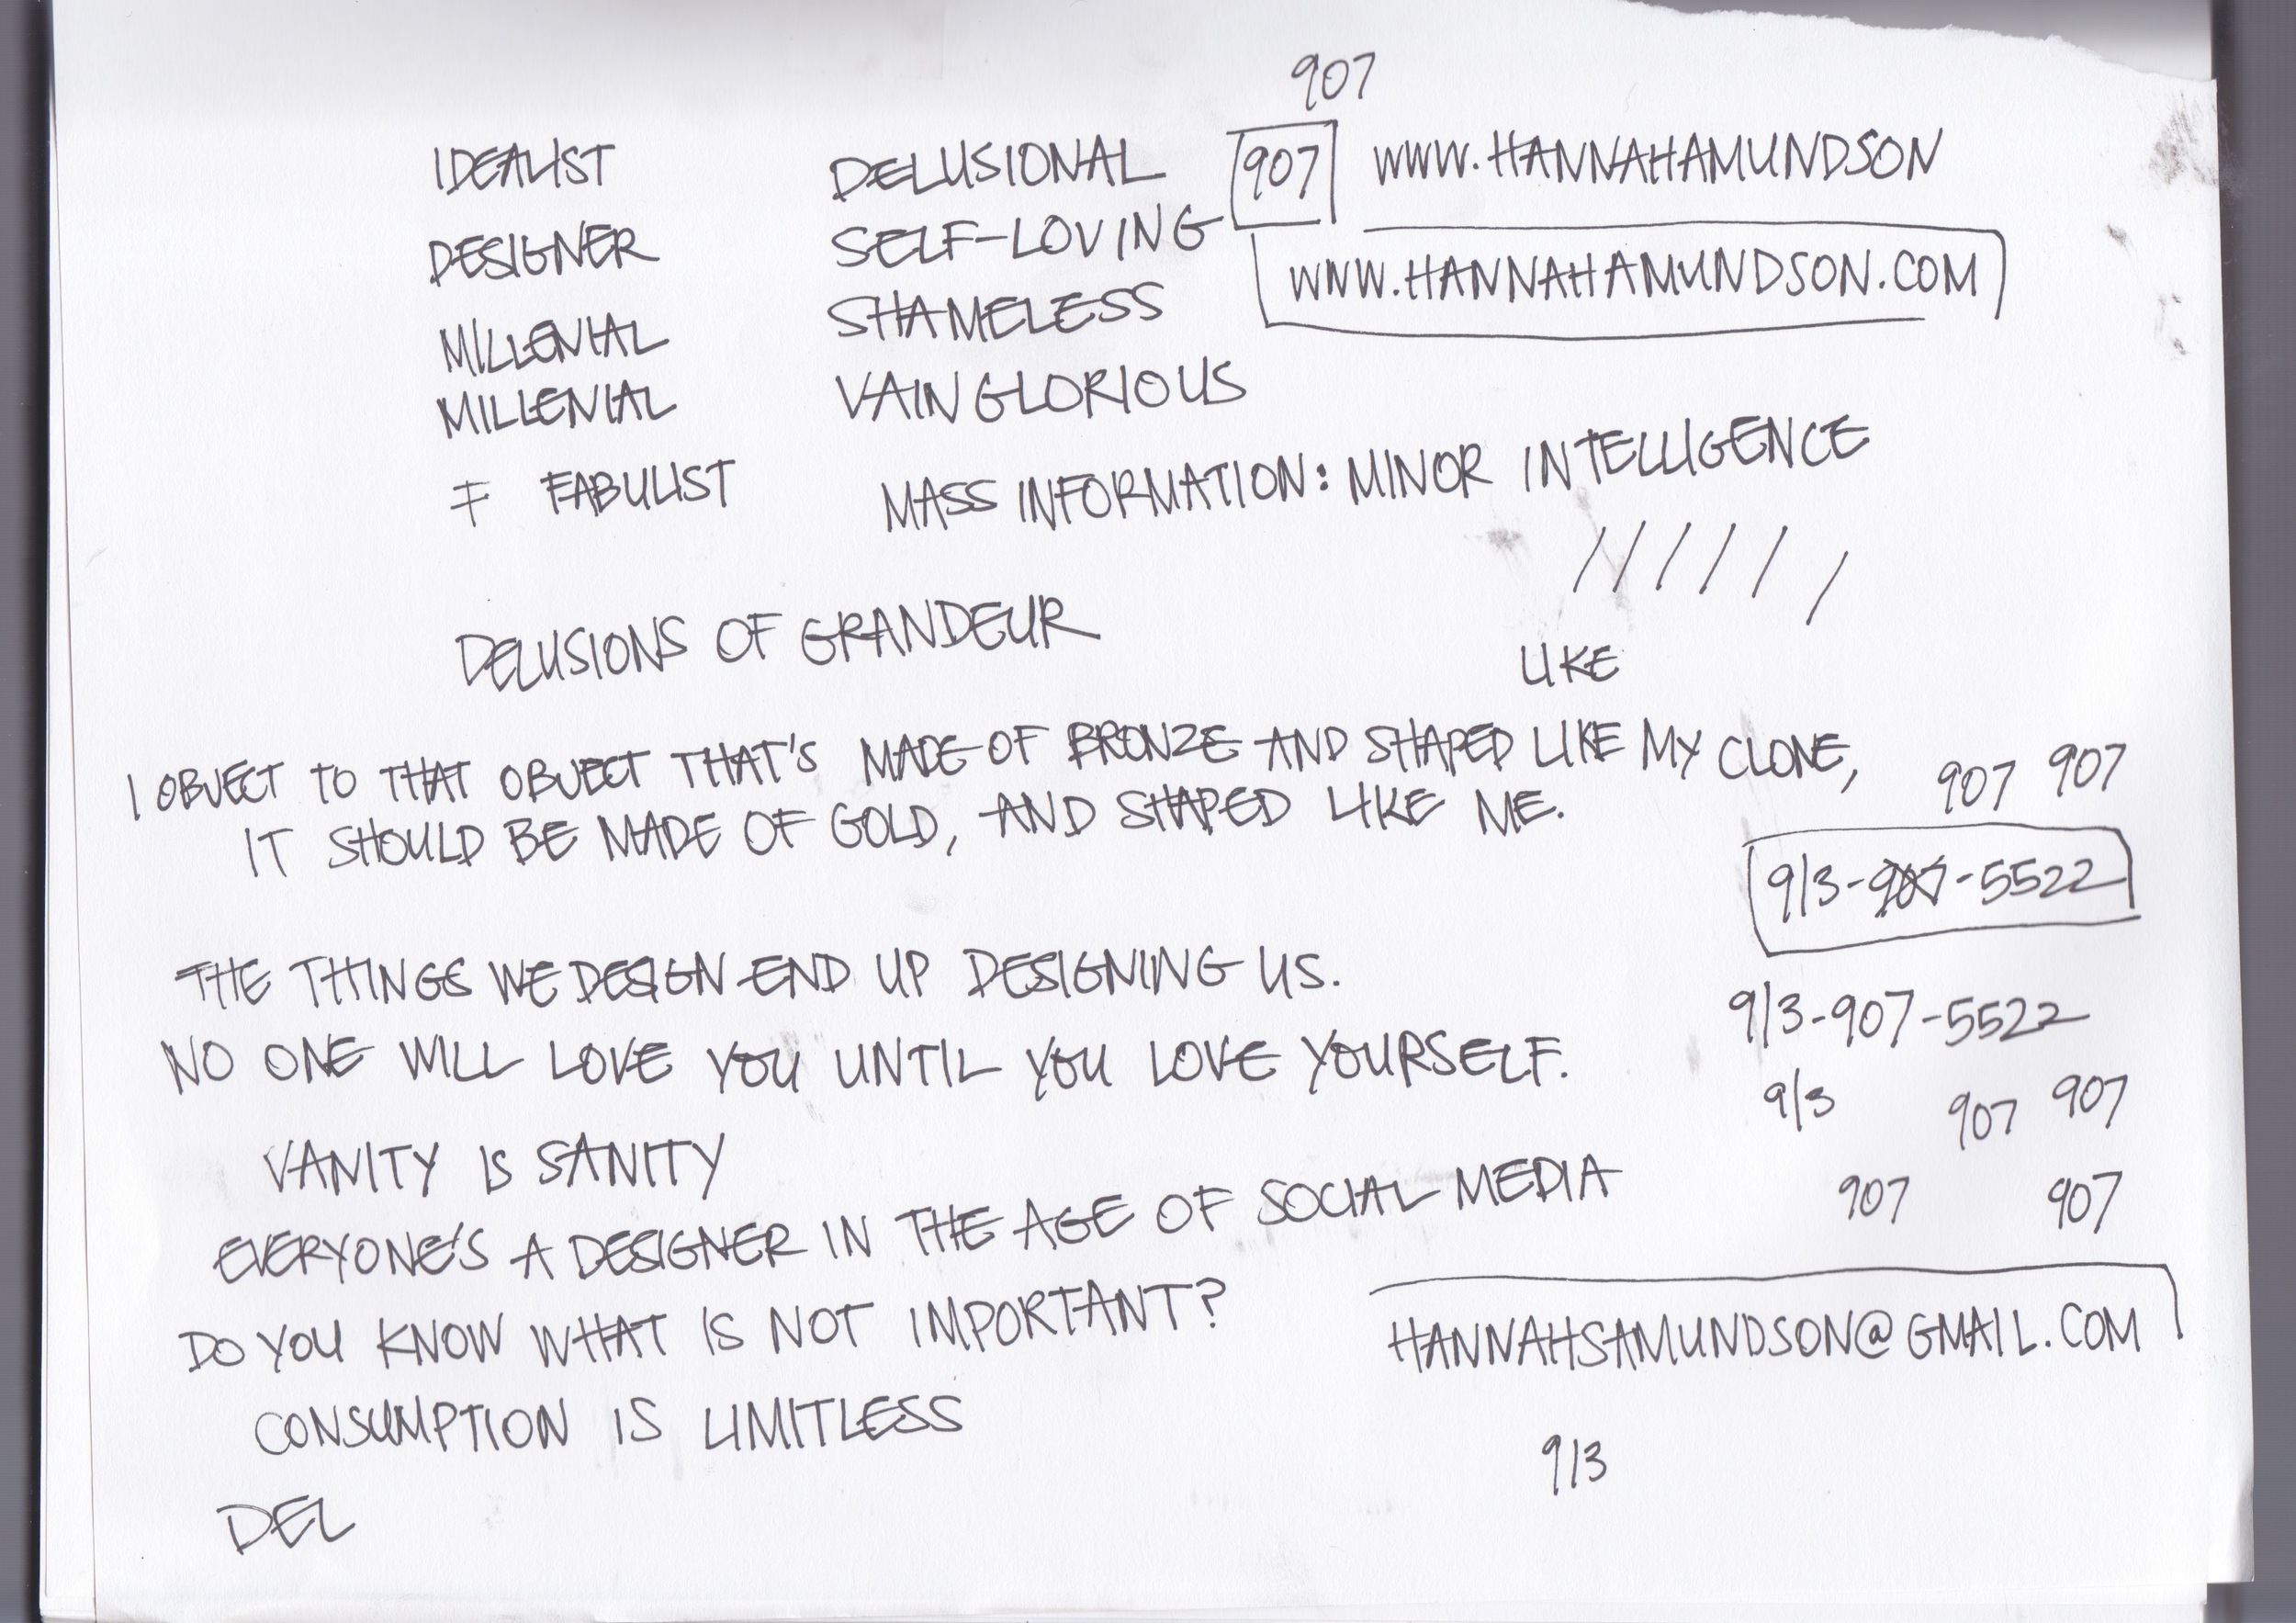 907
IDEALIST DELUSIONAL 907 WWW.HANNAHAMUNDSON
DESIGNER SELF-LOVING WWW.HANNAHAMUNDSON.COM
MILLENIAL SHAMELESS
MILLENIAL VAINGLORIOUS
F FABULIST MASS INFORMATION: MINOR INTELLIGENCE
//////
DELUSIONS OF GRANDEUR
LIKE
I OBJECT TO THAT OBJECT THAT'S MADE OF BRONZE AND SHAPED LIKE MY CLONE,
IT SHOULD BE MADE OF GOLD, AND SHAPED LIKE ME.
907 907
913-907-5522
THE THINGS WE DESIGN END UP DESIGNING US.
913-907-5522
NO ONE WILL LOVE YOU UNTIL YOU LOVE YOURSELF.
913 907 907
VANITY IS SANITY
907 907
EVERYONE'S A DESIGNER IN THE AGE OF SOCIAL MEDIA
DO YOU KNOW WHAT IS NOT IMPORTANT?
HANNAHSAMUNDSON@GMAIL.COM
CONSUMPTION IS LIMITLESS
913
DEL